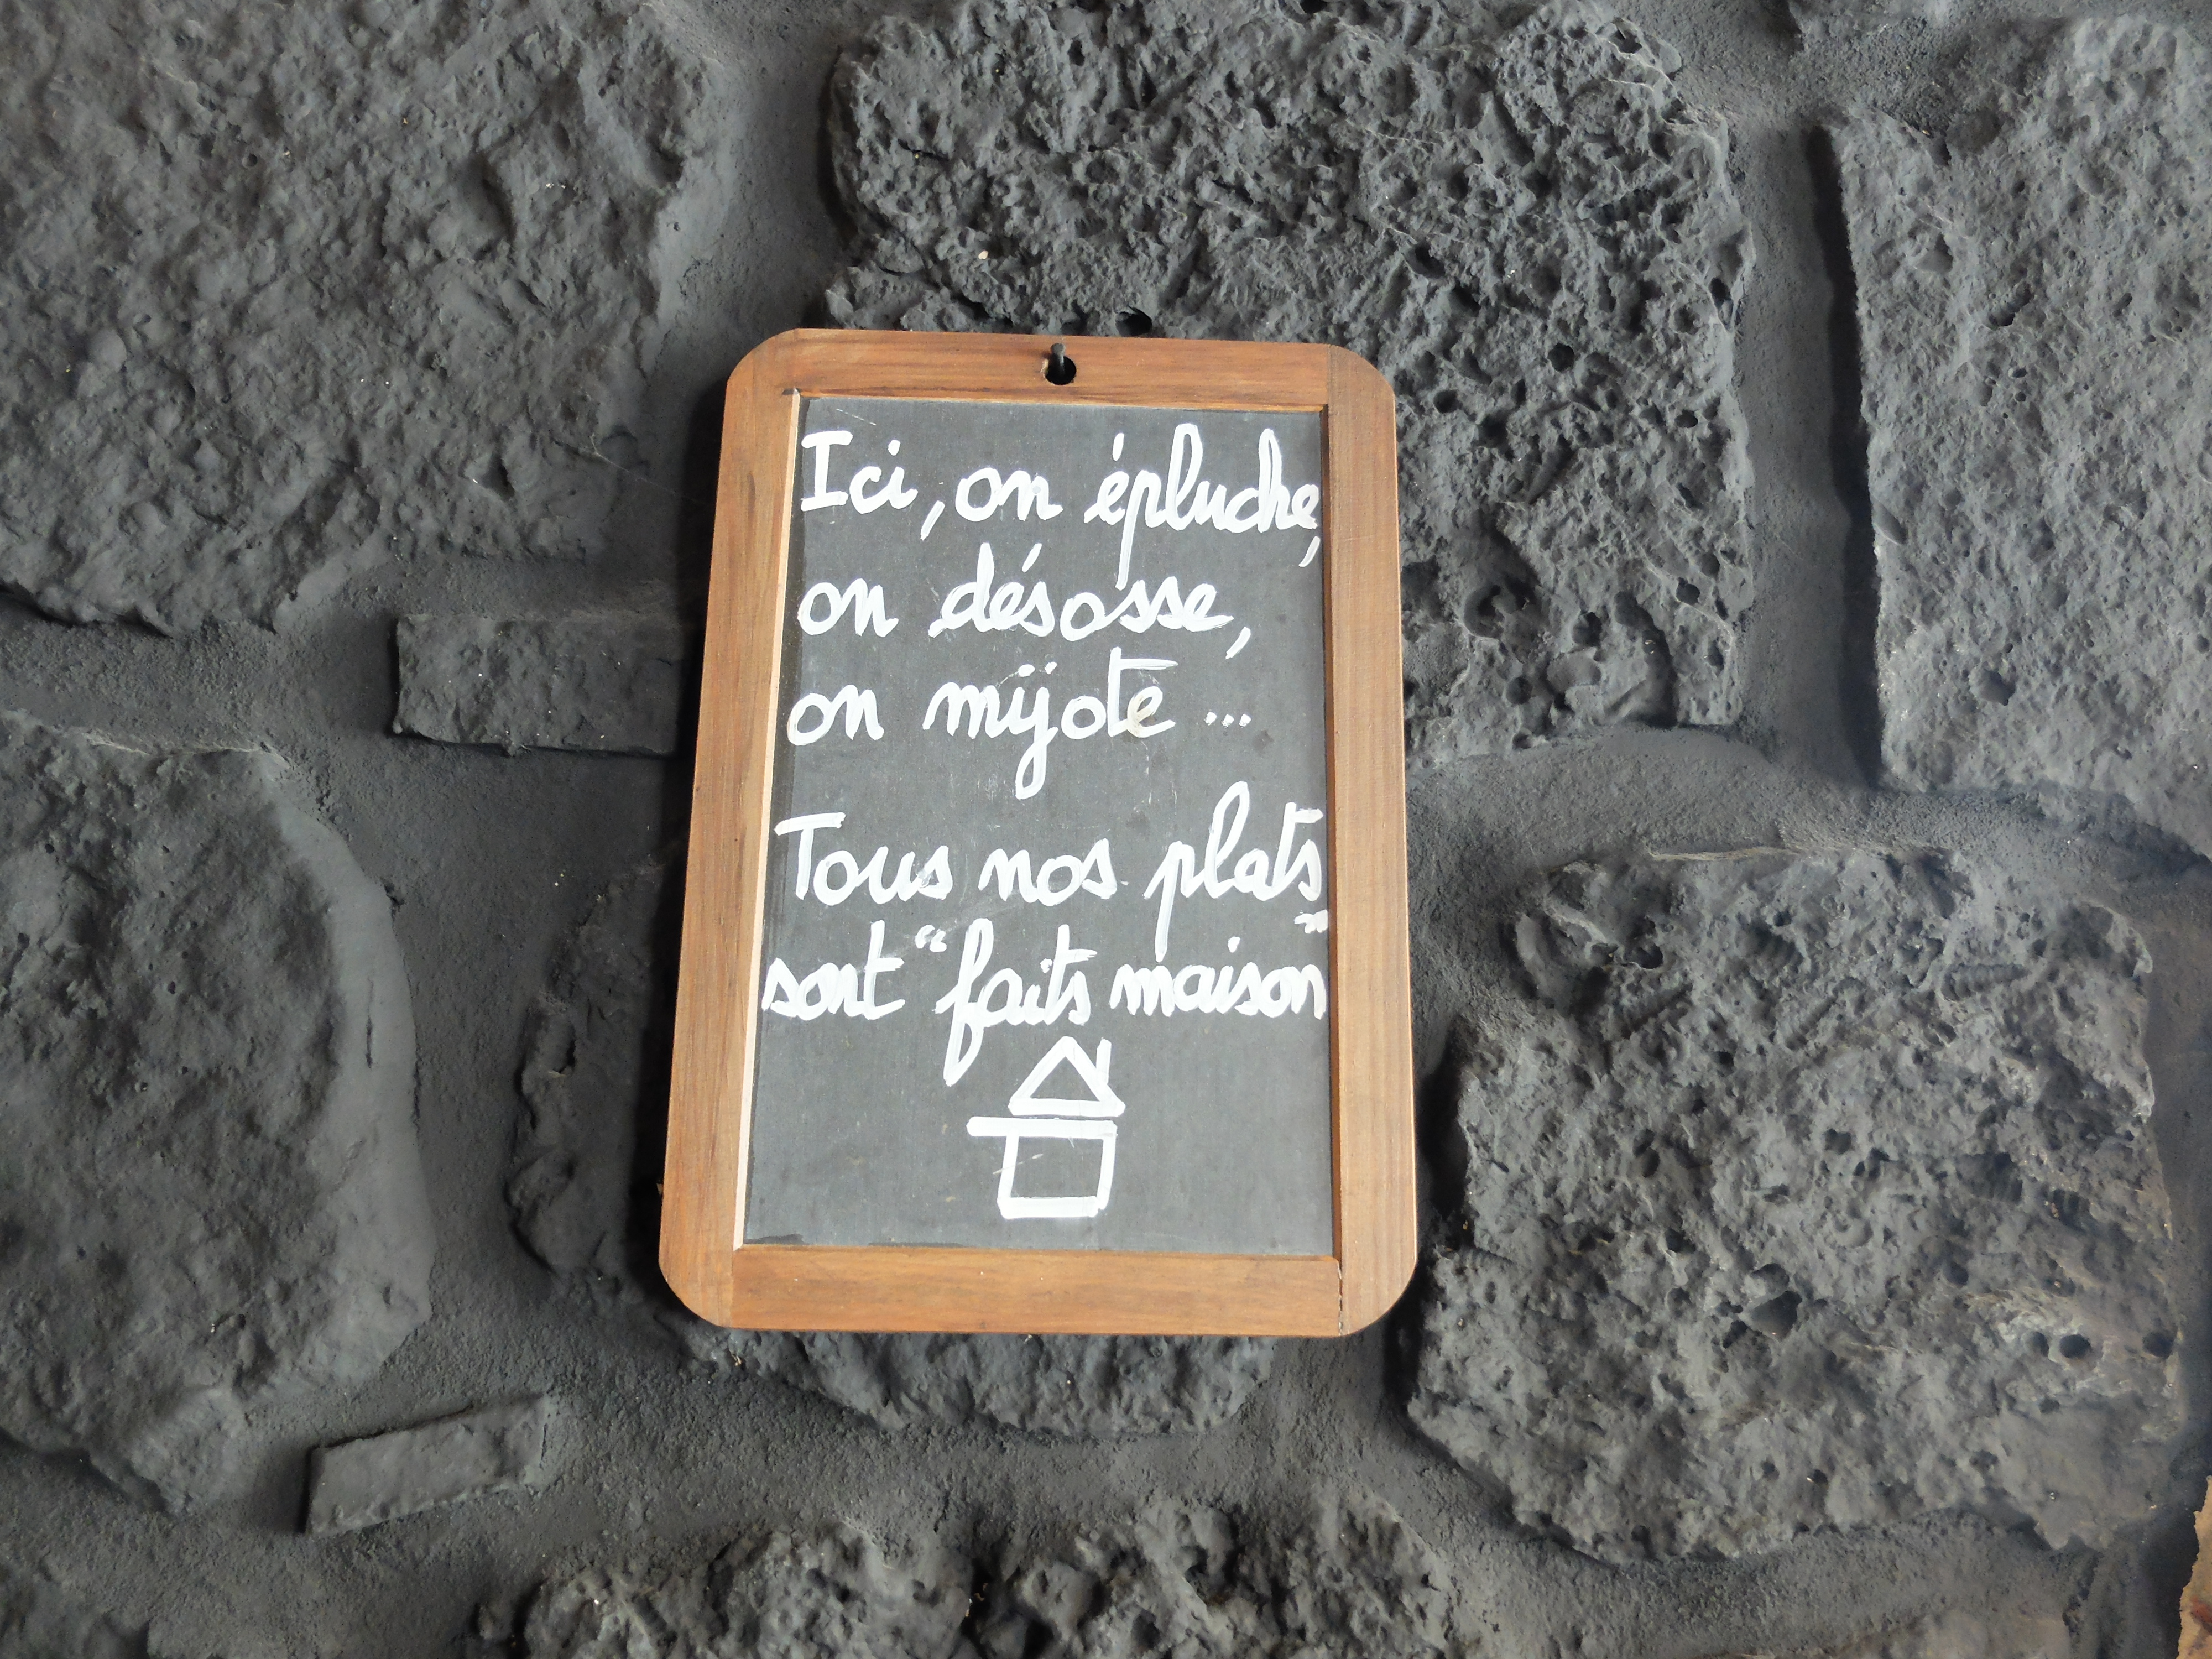 Ici, on épluche,
on désosse,
on mijote ...
Tous nos plats
sont "faits maison"